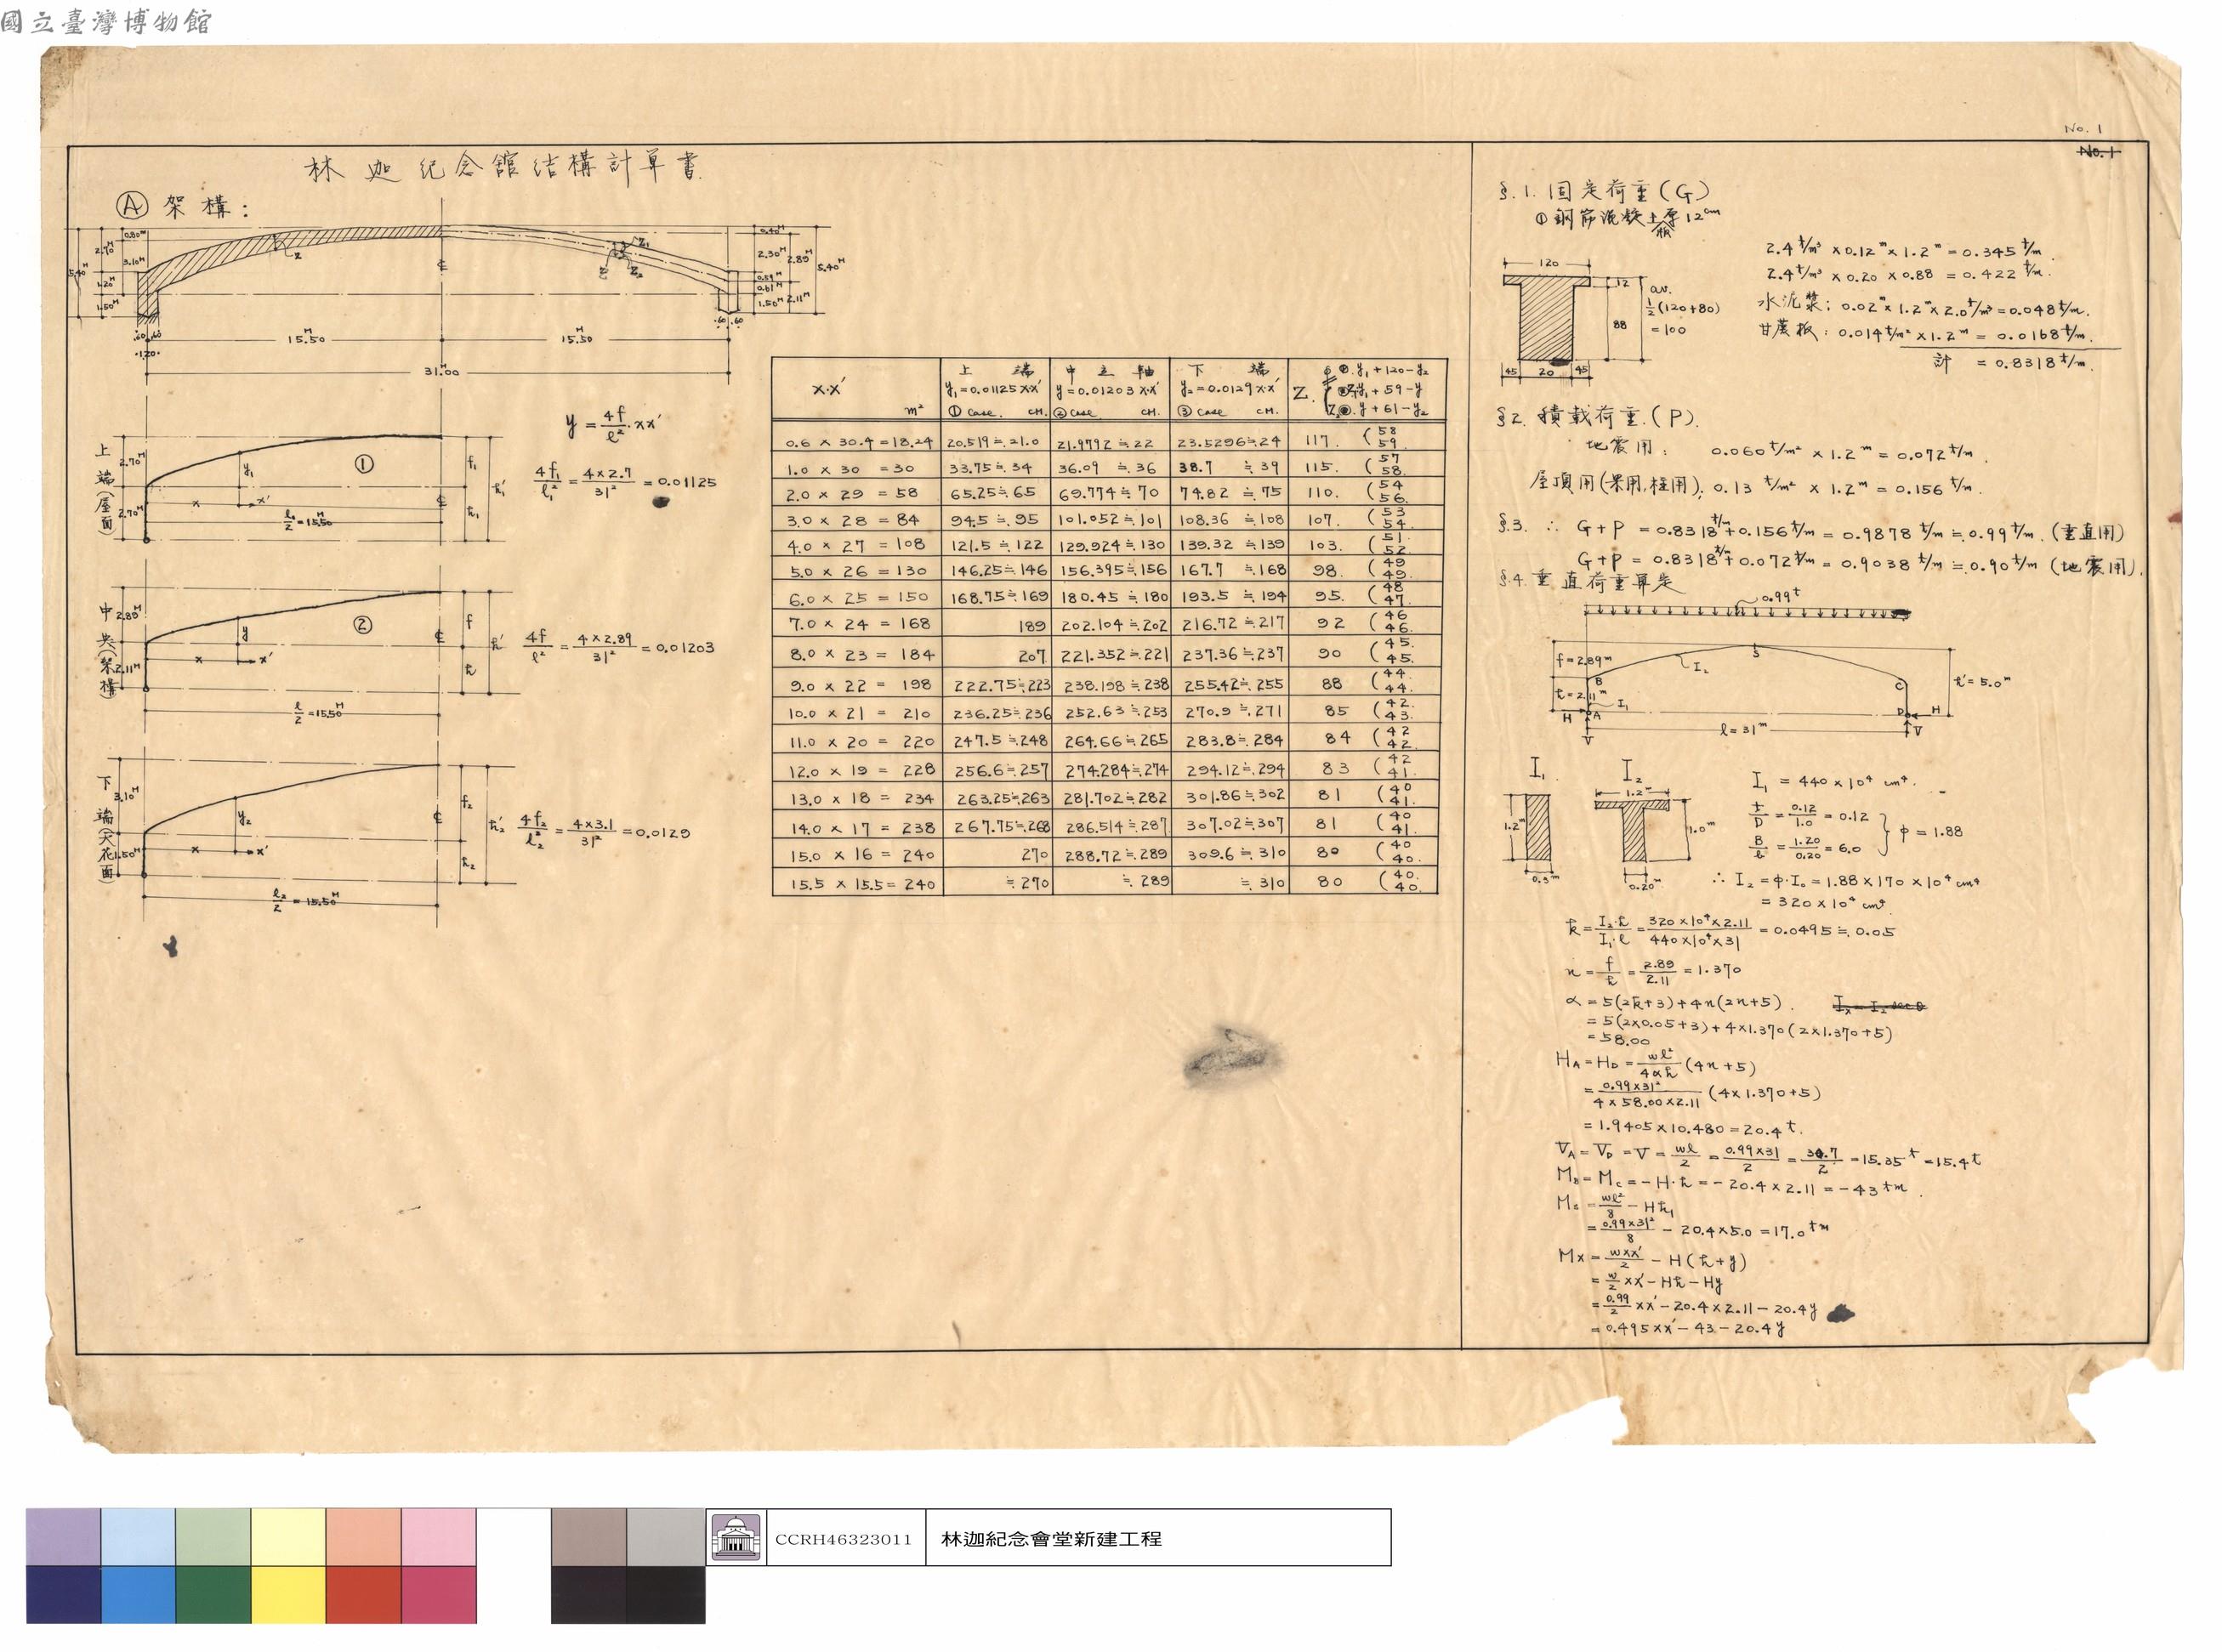 國立臺灣博物館
No. 1
No. 1
林迦紀念館結構計算書
Ⓐ 架構：
0.80ᴹ
2.70ᴹ
3.10ᴹ
5.40ᴹ
1.20ᴹ
1.50ᴹ
Z
Z₁
Z
Z₂
0.40ᴹ
2.30ᴹ
2.89ᴹ
5.40ᴹ
0.59ᴹ
0.61ᴹ
1.50ᴹ
2.11ᴹ
.60 .60
.60 .60
1.20
15.50ᴹ
15.50ᴹ
31.00ᴹ
y = 4f/ℓ² · xx′
上端(屋面)
2.70ᴹ
2.70ᴹ
①
y₁
x
x′
f₁
h₁
h₁′
ℓ₁/2 = 15.50ᴹ
4f₁/ℓ₁² = 4×2.7/31² = 0.01125
中央(架構)
2.89ᴹ
2.11ᴹ
②
y
x
x′
f
h
h′
ℓ/2 = 15.50ᴹ
4f/ℓ² = 4×2.89/31² = 0.01203
下端(天花面)
3.10ᴹ
1.50ᴹ
y₂
x
x′
f₂
h₂
h₂′
ℓ₂/2 = 15.50ᴹ
4f₂/ℓ₂² = 4×3.1/31² = 0.0129
x·x′ m²
上端 y₁=0.01125 x·x′ ① case. CM.
中立軸 y=0.01203 x·x′ ② case CM.
下端 y₂=0.0129 x·x′ ③ case CM.
Z. y₁+120-y₂
y₁+59-y
y+61-y₂
0.6 × 30.4 = 18.24 20.519≒21.0 21.9792≒22 23.5296≒24 117. (58 59.
1.0 × 30 = 30 33.75≒34 36.09≒36 38.7≒39 115. (57 58.
2.0 × 29 = 58 65.25≒65 69.774≒70 74.82≒75 110. (54 56.
3.0 × 28 = 84 94.5≒95 101.052≒101 108.36≒108 107. (53 54.
4.0 × 27 = 108 121.5≒122 129.924≒130 139.32≒139 103. (51 52.
5.0 × 26 = 130 146.25≒146 156.395≒156 167.7≒168 98. (49 49.
6.0 × 25 = 150 168.75≒169 180.45≒180 193.5≒194 95. (48 47.
7.0 × 24 = 168 189 202.104≒202 216.72≒217 92 (46 46.
8.0 × 23 = 184 207 221.352≒221 237.36≒237 90 (45. 45.
9.0 × 22 = 198 222.75≒223 238.198≒238 255.42≒255 88 (44. 44.
10.0 × 21 = 210 236.25≒236 252.63≒253 270.9≒271 85 (42. 43.
11.0 × 20 = 220 247.5≒248 264.66≒265 283.8≒284 84 (42 42.
12.0 × 19 = 228 256.6≒257 274.284≒274 294.12≒294 83 (42 41.
13.0 × 18 = 234 263.25≒263 281.702≒282 301.86≒302 81 (40 41.
14.0 × 17 = 238 267.75≒268 286.514≒287 307.02≒307 81 (40 41.
15.0 × 16 = 240 270 288.72≒289 309.6≒310 80 (40 40.
15.5 × 15.5 = 240 ≒270 ≒289 ≒310 80 (40. 40.
§.1. 固定荷重(G)
① 鋼筋混凝土版厚12ᶜᵐ
2.4ᵗ/m³ × 0.12ᵐ × 1.2ᵐ = 0.345ᵗ/m.
2.4ᵗ/m³ × 0.20 × 0.88 = 0.422ᵗ/m.
水泥漿: 0.02ᵐ × 1.2ᵐ × 2.0ᵗ/m³ = 0.048ᵗ/m.
甘蔗板: 0.014ᵗ/m² × 1.2ᵐ = 0.0168ᵗ/m.
計 = 0.8318ᵗ/m.
120
12
88
av. ½(120+80) = 100
45 20 45
§2. 積載荷重.(P).
地震用: 0.060ᵗ/m² × 1.2ᵐ = 0.072ᵗ/m.
屋頂用(梁用,柱用): 0.13ᵗ/m² × 1.2ᵐ = 0.156ᵗ/m.
§.3. ∴ G+P = 0.8318ᵗ/m + 0.156ᵗ/m = 0.9878ᵗ/m ≒ 0.99ᵗ/m. (垂直用)
G+P = 0.8318ᵗ/m + 0.072ᵗ/m = 0.9038ᵗ/m ≒ 0.90ᵗ/m (地震用).
§.4. 垂直荷重算定
0.99ᵗ
f=2.89ᵐ
h=2.11ᵐ
B
I₂
S
C
I₁
H
A
V
D
H
V
h′=5.0ᵐ
ℓ=31ᵐ
I₁
1.2ᵐ
0.3ᵐ
I₂
1.2ᵐ
1.0ᵐ
0.20ᵐ
I₁ = 440×10⁴ cm⁴.
t/D = 0.12/1.0 = 0.12
B/b = 1.20/0.20 = 6.0
φ = 1.88
∴ I₂ = φ·I₀ = 1.88×170×10⁴ cm⁴
= 320×10⁴ cm⁴
k = I₂·h/I₁·ℓ = 320×10⁴×2.11/440×10⁴×31 = 0.0495 ≒ 0.05
n = f/h = 2.89/2.11 = 1.370
α = 5(2k+3)+4n(2n+5).
= 5(2×0.05+3)+4×1.370(2×1.370+5)
= 58.00
H_A = H_D = wℓ²/4αh (4n+5)
= 0.99×31²/4×58.00×2.11 (4×1.370+5)
= 1.9405×10.480 = 20.4ᵗ.
V_A = V_D = V = wℓ/2 = 0.99×31/2 = 30.7/2 = 15.35ᵗ = 15.4ᵗ
M_B = M_C = -H·h = -20.4×2.11 = -43ᵗᵐ.
M_S = wℓ²/8 - Hh₁
= 0.99×31²/8 - 20.4×5.0 = 17.0ᵗᵐ
Mx = wxx′/2 - H(h+y)
= w/2 xx′ - Hh - Hy
= 0.99/2 xx′ - 20.4×2.11 - 20.4y
= 0.495xx′ - 43 - 20.4y
CCRH46323011
林迦紀念會堂新建工程